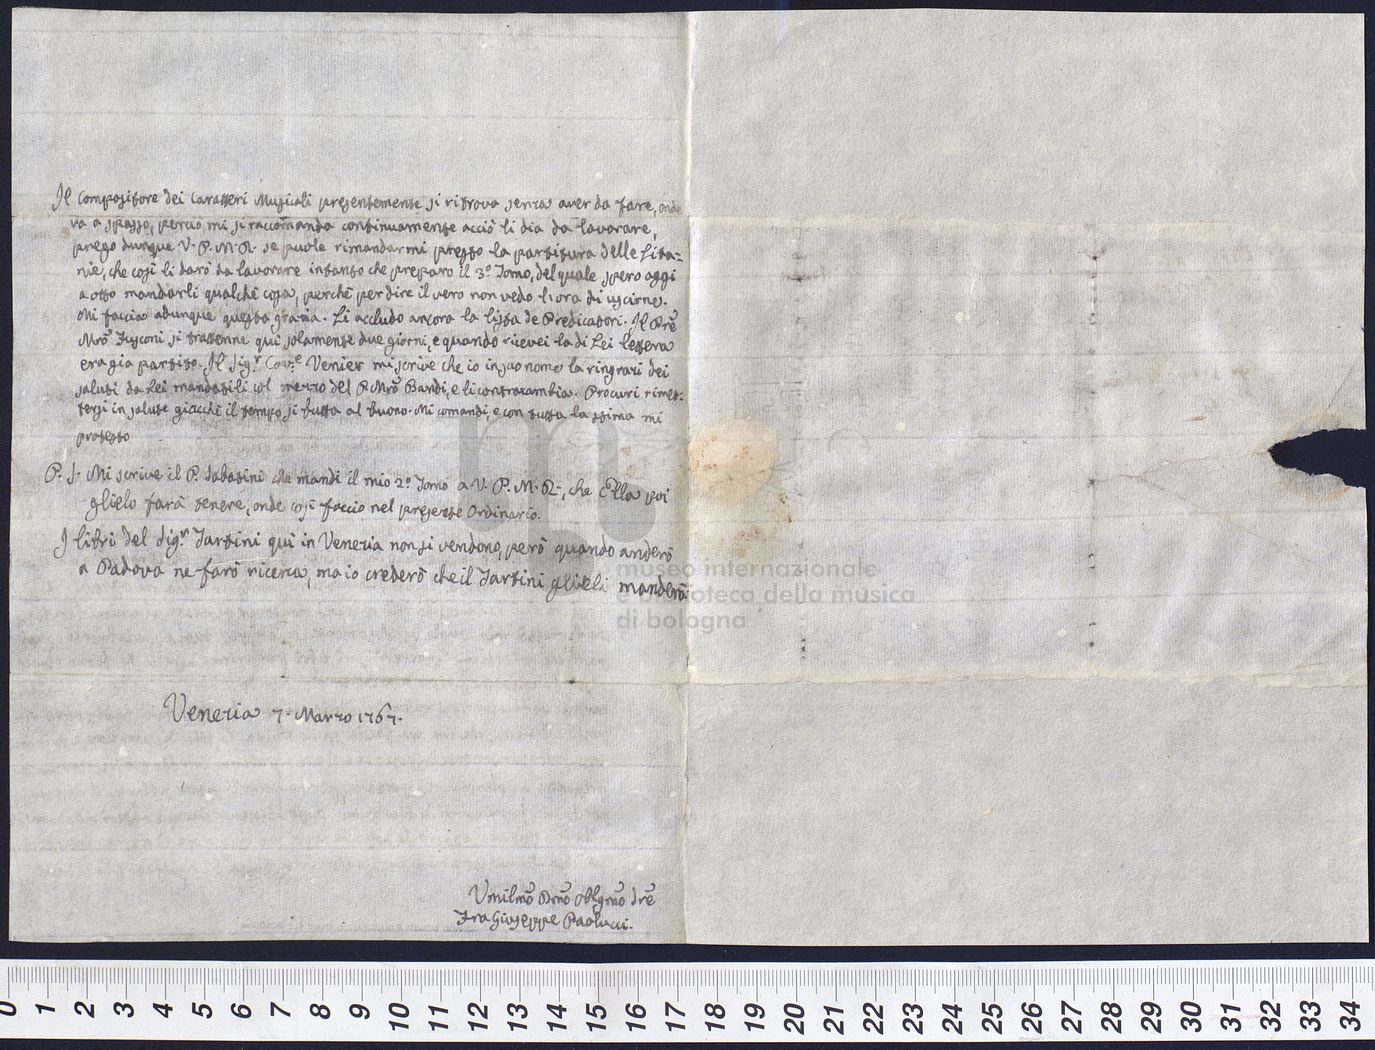 Il Compositore dei Caratteri Musicali presentemente si ritrova senza aver da fare, onde
va a spasso, perciò mi si raccomanda continuamente acciò li dia da lavorare,
prego dunque V. P. M. R. se puole rimandarmi presto la partitura delle Lita=
nie, che così li darò da lavorare intanto che preparo il 3.º Tomo, del quale spero oggi
a otto mandarli qualche cosa, perchè per dire il vero non vedo l'ora di uscirne.
Mi faccia adunque questa grazia. Li accludo ancora la lista de Predicatori. Il Prẽ
Mrõ Fusconi si trattenne qui solamente due giorni, e quando ricevei la di Lei lettera
era gia partito. Il Sig.r Cav.e Venier mi scrive che io in suo nome la ringrazi dei
saluti da Lei mandatili col mezzo del P. Mrõ Bandi, e li contracambia. Procuri rimet=
tersi in salute giacchè il tempo si butta al buono. Mi comandi, e con tutta la stima mi
protesto
P. S. Mi scrive il P. Sabatini che mandi il mio 2.º Tomo a V. P. M. R., che Ella poi
glielo farà tenere, onde così faccio nel presente Ordinario.
I libri del Sig.r Tartini qui in Venezia non si vendono, però quando anderò
a Padova ne farò ricerca, ma io crederò che il Tartini glieli manderà
Venezia 7. Marzo 1767.
Umilmõ Dmõ Obblgmõ Srẽ
Fra Giuseppe Paolucci.
museo internazionale
e biblioteca della musica
di bologna
0 1 2 3 4 5 6 7 8 9 10 11 12 13 14 15 16 17 18 19 20 21 22 23 24 25 26 27 28 29 30 31 32 33 34